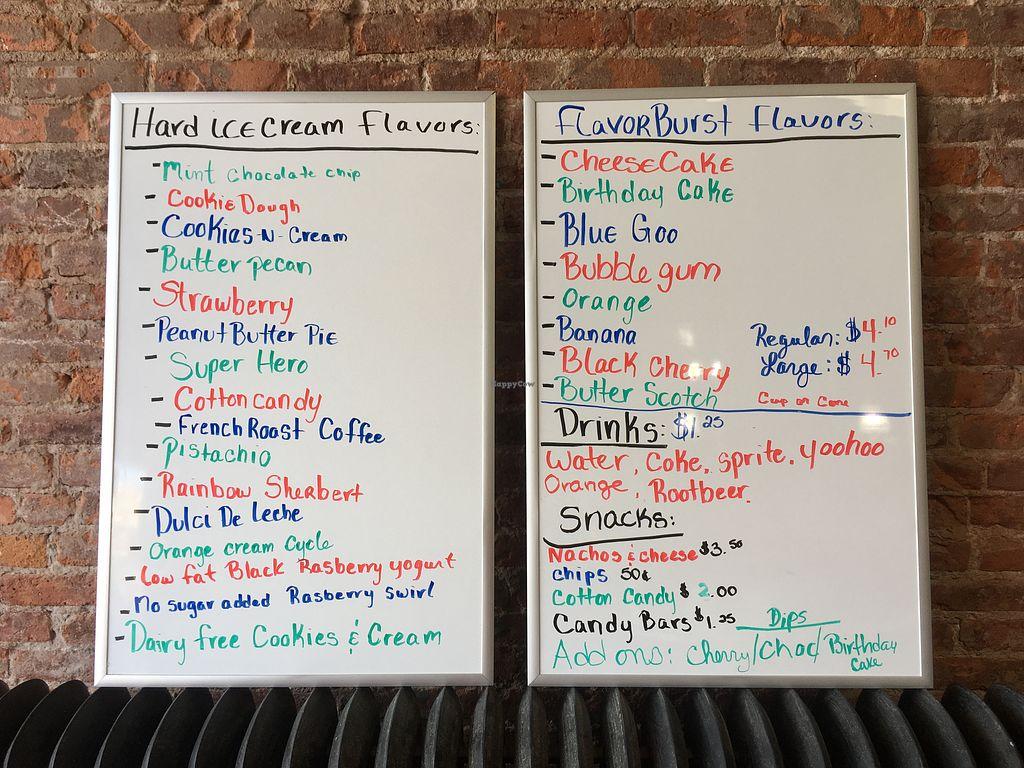 Hard ICE Cream Flavors:
- Mint chocolate chip
- Cookie Dough
- Cookies-N-Cream
- Butter pecan
- Strawberry
- Peanut Butter Pie
- Super Hero
- Cotton candy
- French Roast Coffee
- Pistachio
- Rainbow Sherbert
- Dulci De Leche
- Orange cream Cycle
- Low fat Black Rasberry yogurt
- No sugar added Rasberry swirl
- Dairy free Cookies & Cream
FlavorBurst Flavors:
- CheeseCake
- Birthday Cake
- Blue Goo
- Bubble gum
- Orange
- Banana
- Black Cherry
- Butter Scotch
Regular: $4.10
Large: $4.70
Cup or Cone
Drinks: $1.25
Water, Coke, Sprite, yoohoo
Orange, Rootbeer.
Snacks:
Nachos & cheese $3.50
chips 50¢
Cotton Candy $2.00
Candy Bars $1.25
Dips
Add ons: Cherry/Choc/Birthday Cake
HappyCow